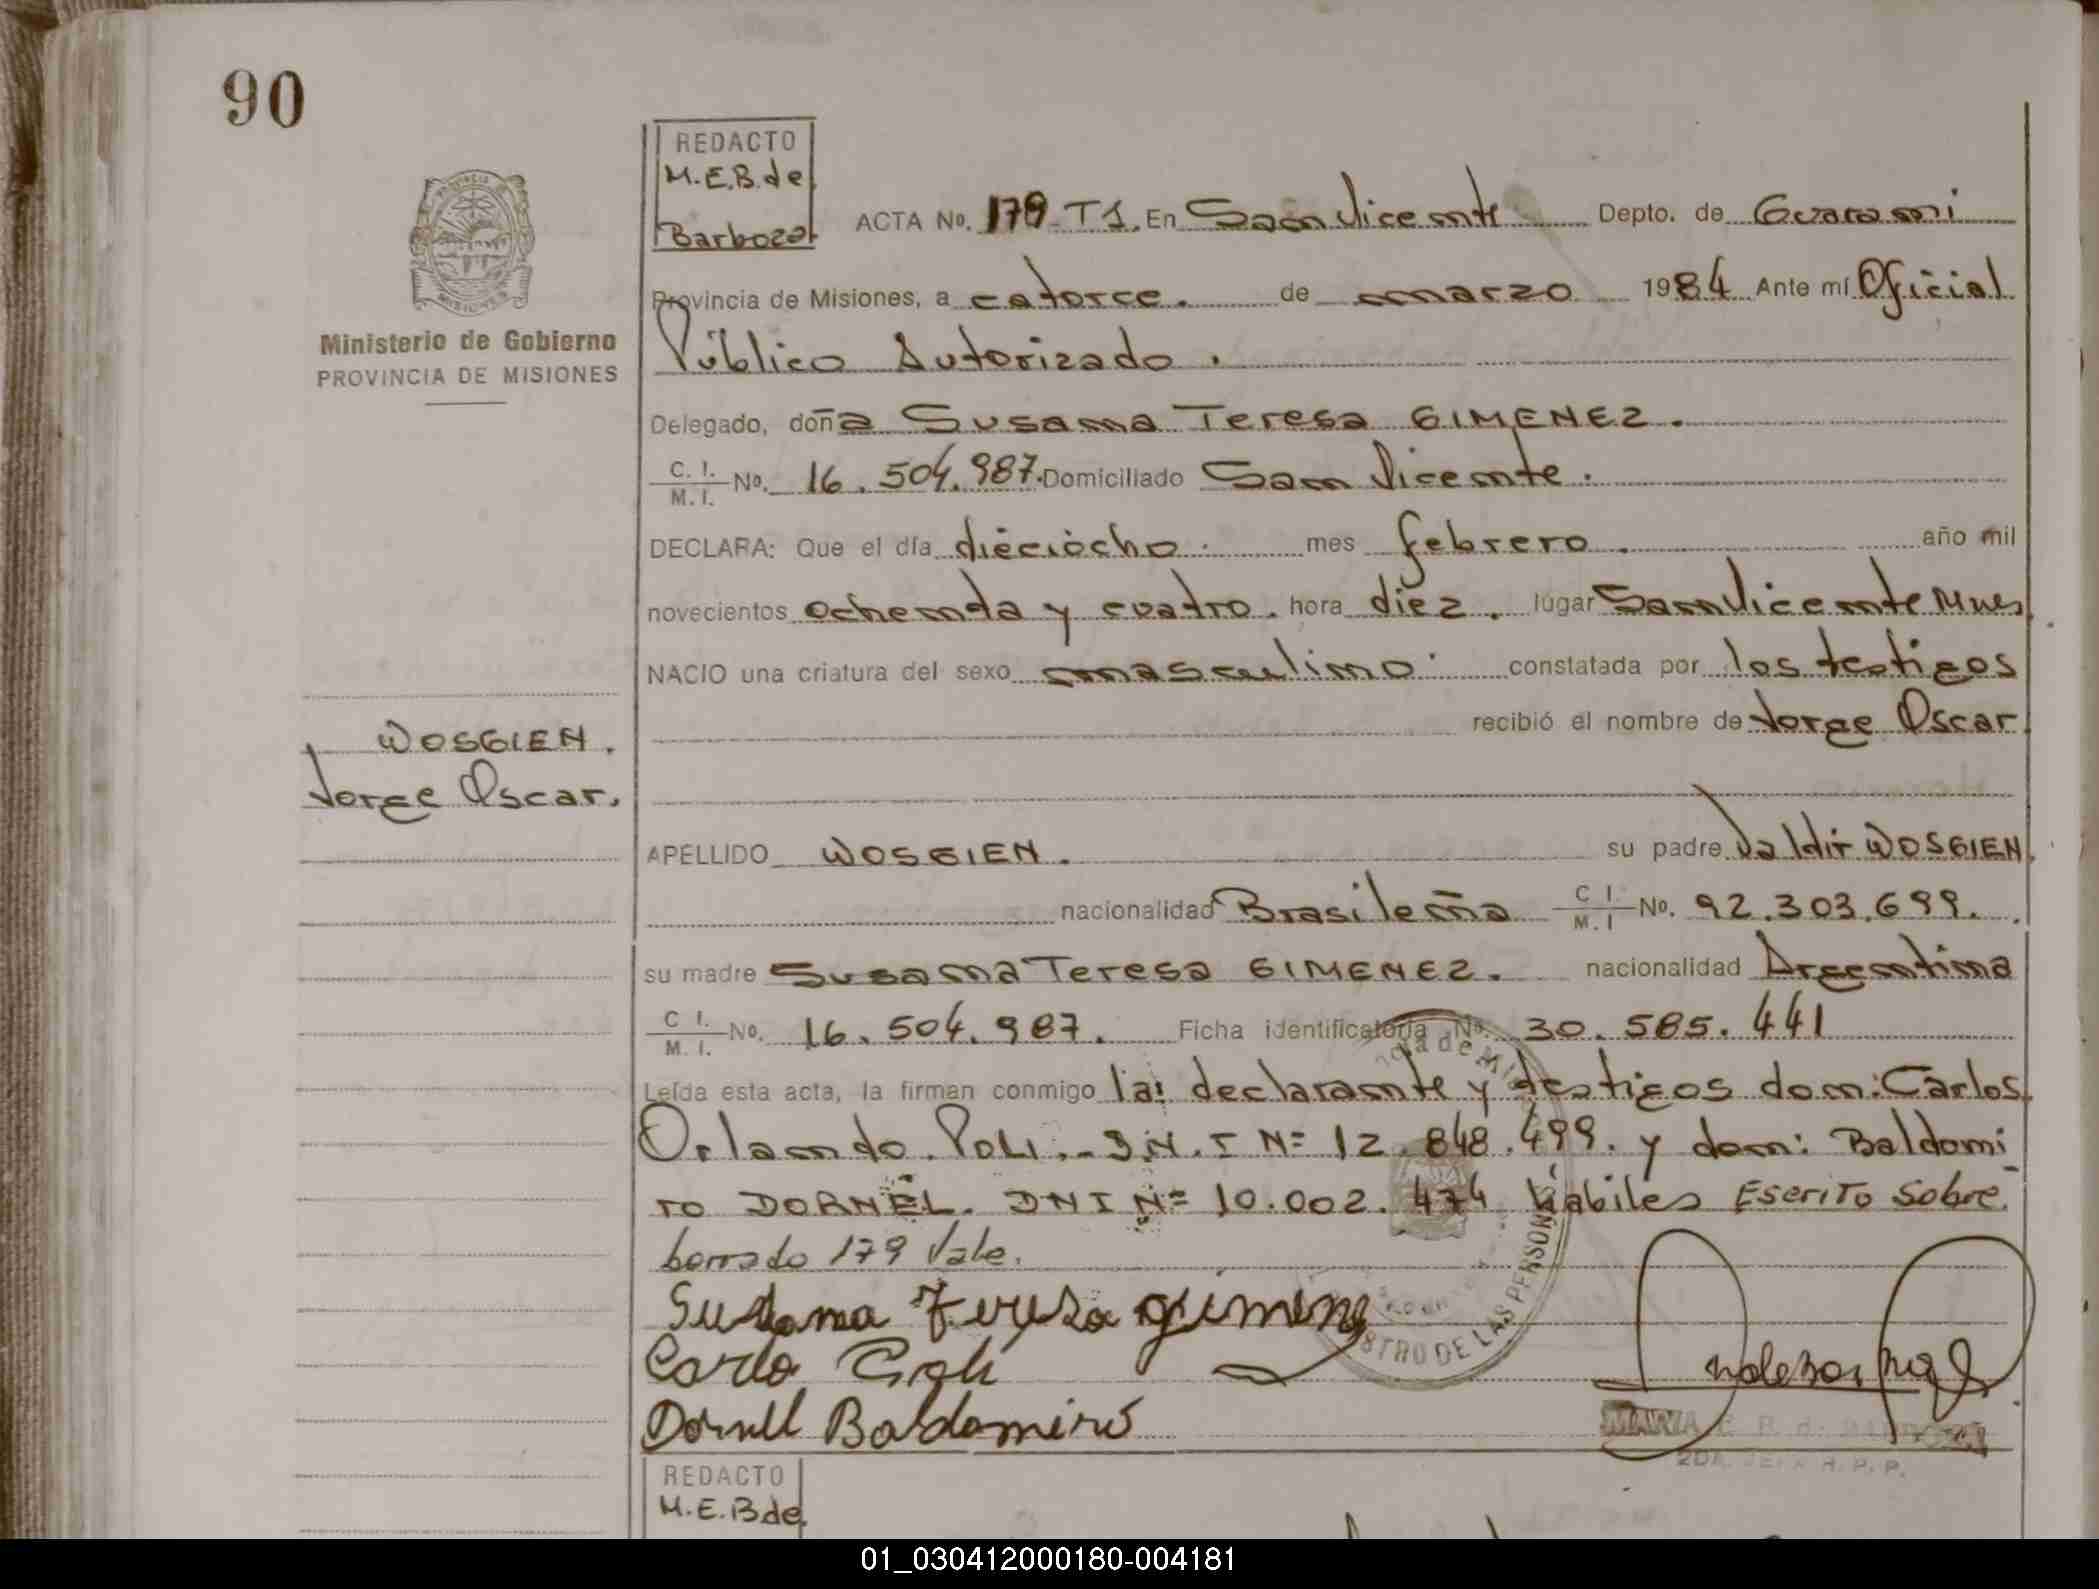 90
REDACTO
M.E.B. de
Barboza
ACTA No. 179-T1. En San Vicente Depto. de Guarani
Provincia de Misiones, a catorce. de marzo 1984 Ante mí Oficial
Público Autorizado.
MISIONES
Ministerio de Gobierno
PROVINCIA DE MISIONES
Delegado, doña Susana Teresa GIMENEZ.
C. I. / M. I. No. 16.504.987. Domiciliado San Vicente.
DECLARA: Que el día dieciocho. mes febrero. año mil
novecientos ochenta y cuatro. hora diez. lugar San Vicente Mnes
NACIO una criatura del sexo masculino. constatada por los testigos
recibió el nombre de Jorge Oscar
WOSGIEN.
Jorge Oscar.
APELLIDO WOSGIEN. su padre Valdir WOSGIEN.
nacionalidad Brasileña C I. / M. I No. 92.303.699.
su madre Susana Teresa GIMENEZ. nacionalidad Argentina
C I. / M. I. No. 16.504.987. Ficha identificatoria No. 30.585.441
Leída esta acta, la firman conmigo la: declarante y testigos don: Carlos
Orlando POLI.- D.N.I Nº 12.848.499. y don: Baldomi
ro DORNEL. DNI Nº 10.002.474 hábiles Escrito Sobre
borrado 179 Vale.
Susana Teresa Gimenez
Carlo Poli
Dornell Baldomiro
STRO DE LAS PERSON
MARIA E. B. de BARBOZA
REDACTO
M.E.B de
01_030412000180-004181